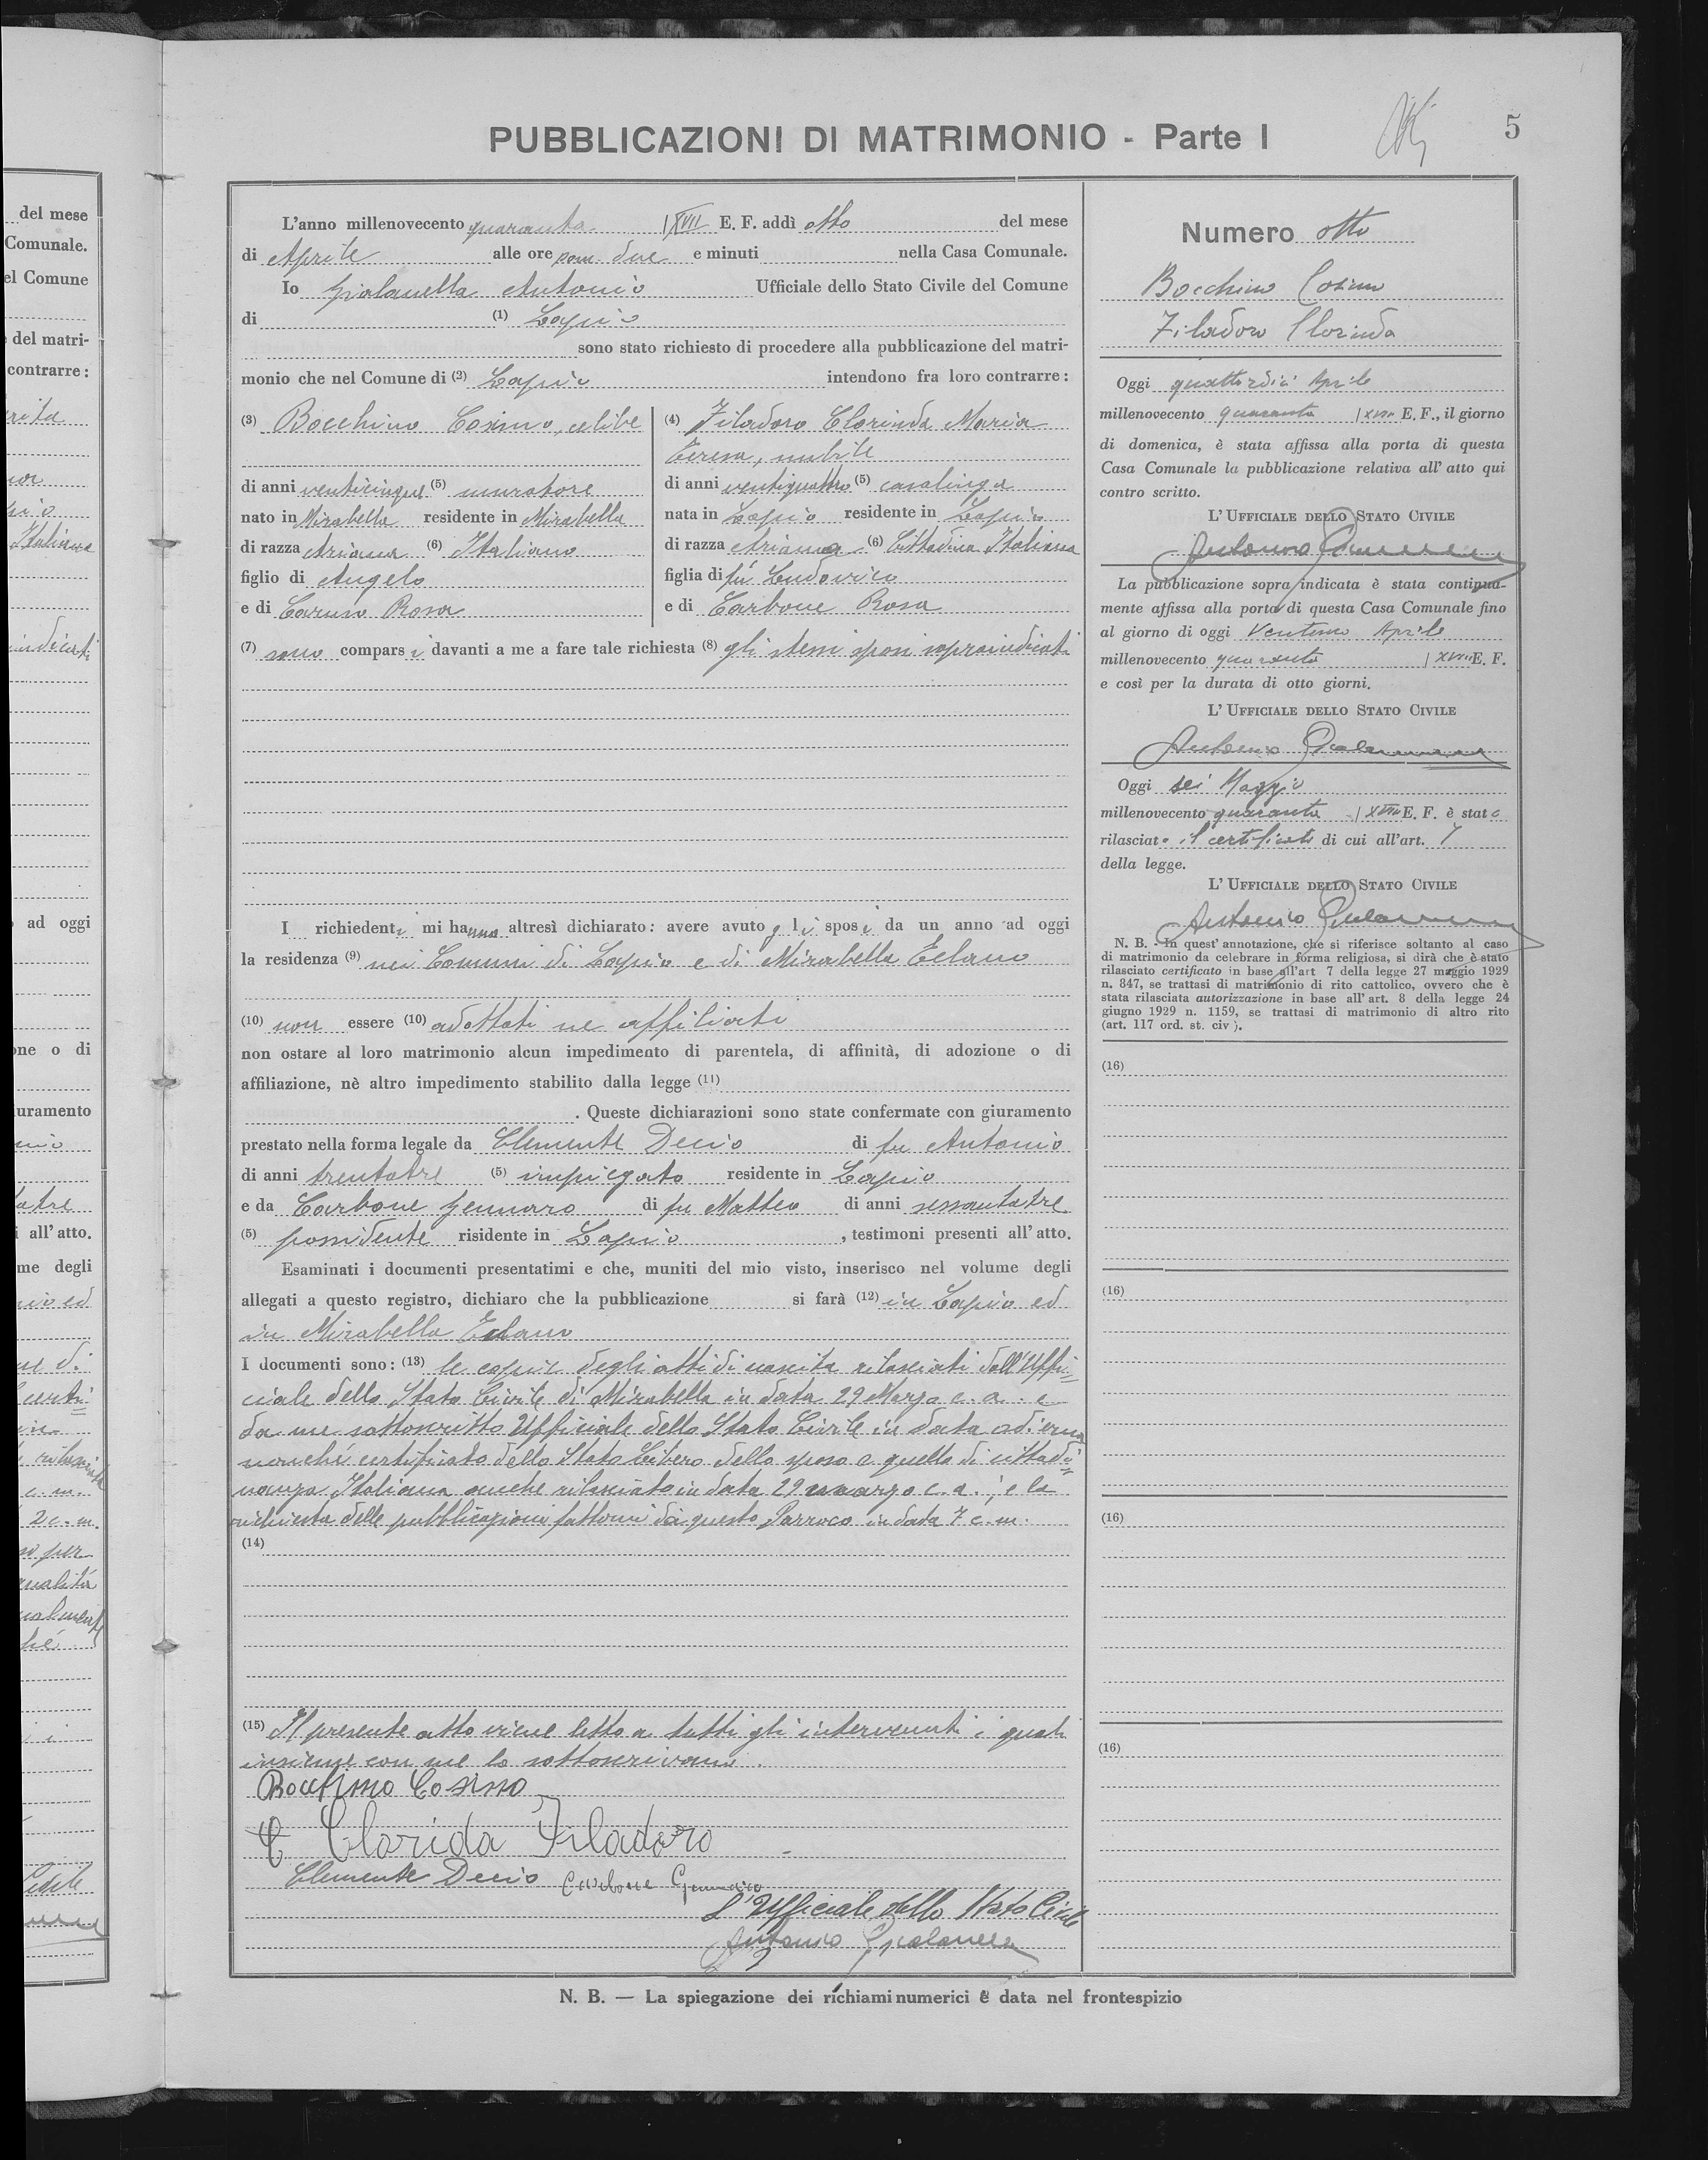 PUBBLICAZIONI DI MATRIMONIO - Parte I
5
L'anno millenovecento quaranta XVIII E. F. addì otto del mese
di Aprile alle ore pom. due e minuti nella Casa Comunale.
Io Antonio Ufficiale dello Stato Civile del Comune
di (1) Lapio
sono stato richiesto di procedere alla pubblicazione del matri-
monio che nel Comune di (2) Lapio intendono fra loro contrarre:
(3) Bocchino Cosimo, celibe
di anni venticinque (5) muratore
nato in Mirabella residente in Mirabella
di razza Ariana (6) Italiano
figlio di Angelo
e di Caruso Rosa
(4) Filadoro Clorinda Maria
Teresa, nubile
di anni ventiquattro (5) casalinga
nata in Lapio residente in Lapio
di razza Ariana (6) Cittadina Italiana
figlia di fu Ludovico
e di Carbone Rosa
(7) sono comparsi davanti a me a fare tale richiesta (8) gli stessi sposi sopraindicati
I richiedenti mi hanno altresì dichiarato: avere avuto gli sposi da un anno ad oggi
la residenza (9) nei Comuni di Lapio e di Mirabella Eclano
(10) non essere (10) adottati ne affiliati
non ostare al loro matrimonio alcun impedimento di parentela, di affinità, di adozione o di
affiliazione, nè altro impedimento stabilito dalla legge (11)
. Queste dichiarazioni sono state confermate con giuramento
prestato nella forma legale da Clemente Decio di fu Antonio
di anni trentatre (5) impiegato residente in Lapio
e da Carbone Gennaro di fu Matteo di anni sessantatre
(5) possidente risidente in Lapio , testimoni presenti all'atto.
Esaminati i documenti presentatimi e che, muniti del mio visto, inserisco nel volume degli
allegati a questo registro, dichiaro che la pubblicazione si farà (12) in Lapio ed
in Mirabella Eclano
I documenti sono: (13) le copie degli atti di nascita rilasciati dall'Uffi=
ciale dello Stato Civile di Mirabella in data 29 Marzo c. a. e
da me sottoscritto Ufficiale dello Stato Civile in data odierna
nonché certificato dello Stato Libero dello sposo e quello di cittadi=
nanza Italiana anche rilasciato in data 29 marzo c. a.; e la
richiesta delle pubblicazioni fattomi da questo Parroco in data 7 c. m.
(14)
(15) Il presente atto viene letto a tutti gli intervenuti i quali
insieme con me lo sottoscrivono.
Bocchino Cosimo
C Clorida Filadoro
Clemente Decio Carbone Gennaro
L'Ufficiale dello Stato Civile
Antonio
N. B. — La spiegazione dei richiami numerici è data nel frontespizio
Numero otto
Bocchino Cosimo
Filadoro Clorinda
Oggi quattordici Aprile
millenovecento quaranta XVIII E. F., il giorno
di domenica, è stata affissa alla porta di questa
Casa Comunale la pubblicazione relativa all'atto qui
contro scritto.
L'UFFICIALE DELLO STATO CIVILE
Antonio
La pubblicazione sopra indicata è stata continua-
mente affissa alla porta di questa Casa Comunale fino
al giorno di oggi Ventuno Aprile
millenovecento quaranta XVIII E. F.
e così per la durata di otto giorni.
L'UFFICIALE DELLO STATO CIVILE
Antonio
Oggi sei Maggio
millenovecento quaranta XVIII E. F. è stato
rilasciato il certificato di cui all'art. 7
della legge.
L'UFFICIALE DELLO STATO CIVILE
Antonio
N. B. - In quest'annotazione, che si riferisce soltanto al caso
di matrimonio da celebrare in forma religiosa, si dirà che è stato
rilasciato certificato in base all'art 7 della legge 27 maggio 1929
n. 847, se trattasi di matrimonio di rito cattolico, ovvero che è
stata rilasciata autorizzazione in base all'art. 8 della legge 24
giugno 1929 n. 1159, se trattasi di matrimonio di altro rito
(art. 117 ord. st. civ).
(16)
(16)
(16)
(16)